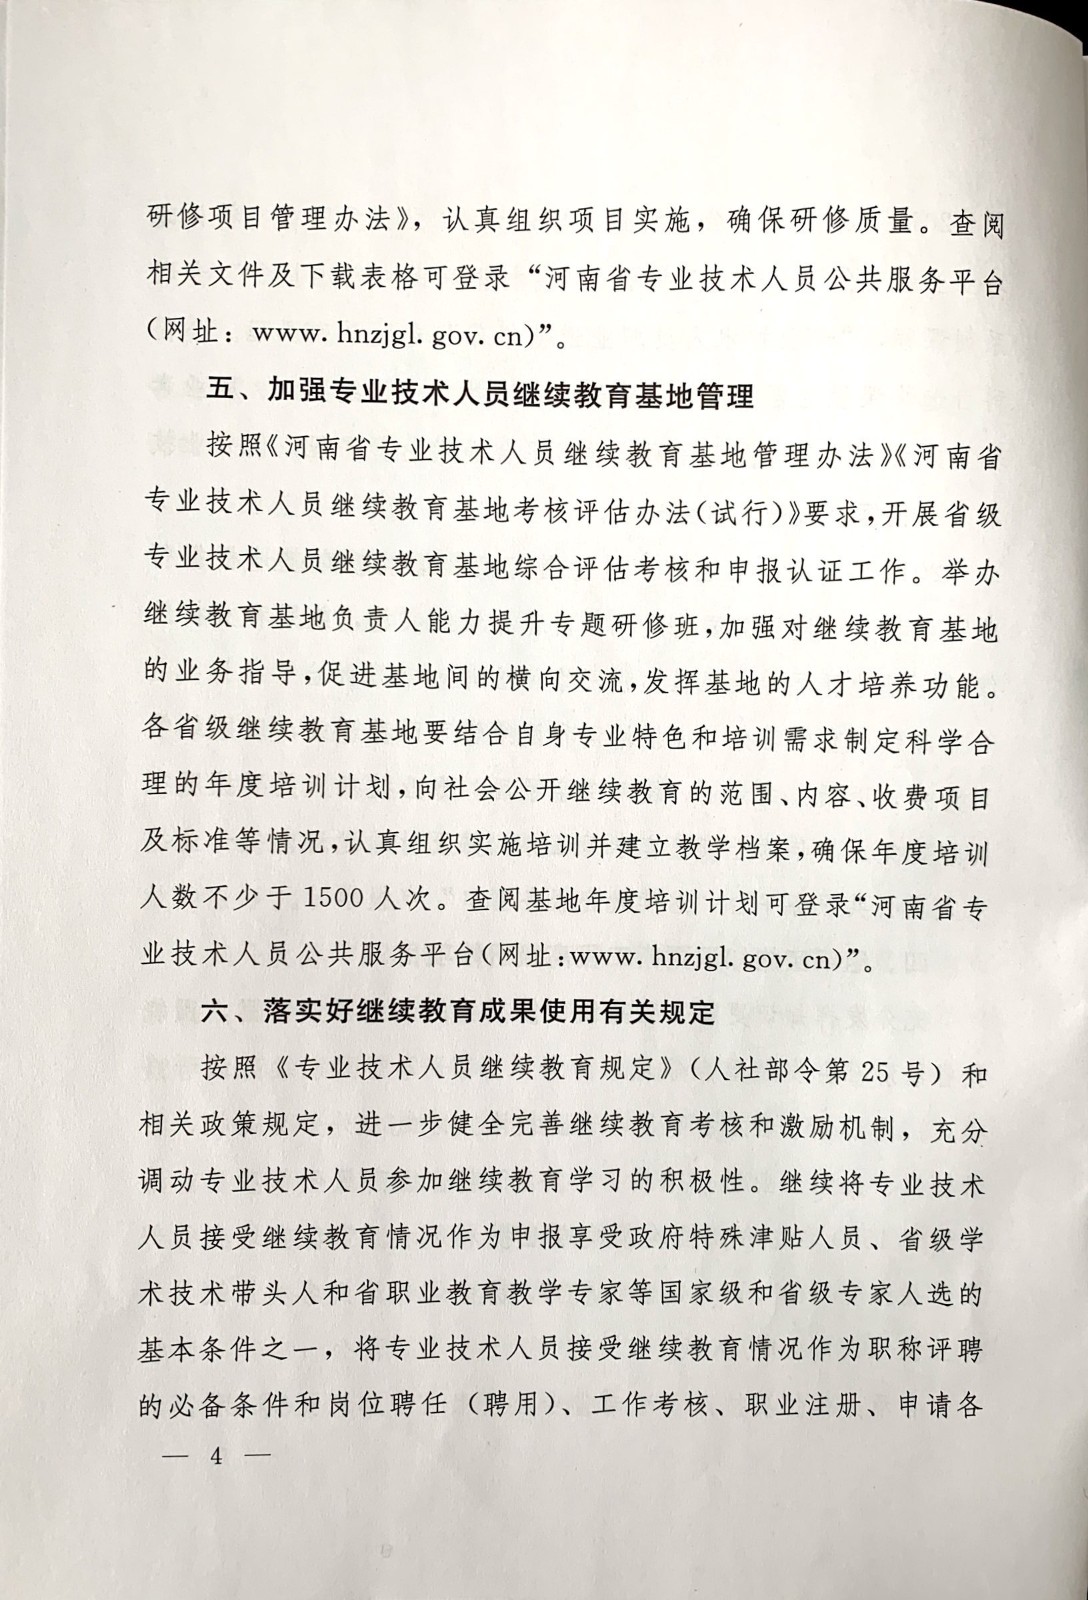 研修项目管理办法》，认真组织项目实施，确保研修质量。查阅
相关文件及下载表格可登录“河南省专业技术人员公共服务平台
（网址：www.hnzjgl.gov.cn)”。
五、加强专业技术人员继续教育基地管理
按照《河南省专业技术人员继续教育基地管理办法》《河南省
专业技术人员继续教育基地考核评估办法(试行)》要求,开展省级
专业技术人员继续教育基地综合评估考核和申报认证工作。举办
继续教育基地负责人能力提升专题研修班,加强对继续教育基地
的业务指导,促进基地间的横向交流,发挥基地的人才培养功能。
各省级继续教育基地要结合自身专业特色和培训需求制定科学合
理的年度培训计划,向社会公开继续教育的范围、内容、收费项目
及标准等情况,认真组织实施培训并建立教学档案,确保年度培训
人数不少于1500人次。查阅基地年度培训计划可登录“河南省专
业技术人员公共服务平台(网址:www.hnzjgl.gov.cn)”。
六、落实好继续教育成果使用有关规定
按照《专业技术人员继续教育规定》（人社部令第25号）和
相关政策规定，进一步健全完善继续教育考核和激励机制，充分
调动专业技术人员参加继续教育学习的积极性。继续将专业技术
人员接受继续教育情况作为申报享受政府特殊津贴人员、省级学
术技术带头人和省职业教育教学专家等国家级和省级专家人选的
基本条件之一，将专业技术人员接受继续教育情况作为职称评聘
的必备条件和岗位聘任（聘用）、工作考核、职业注册、申请各
— 4 —